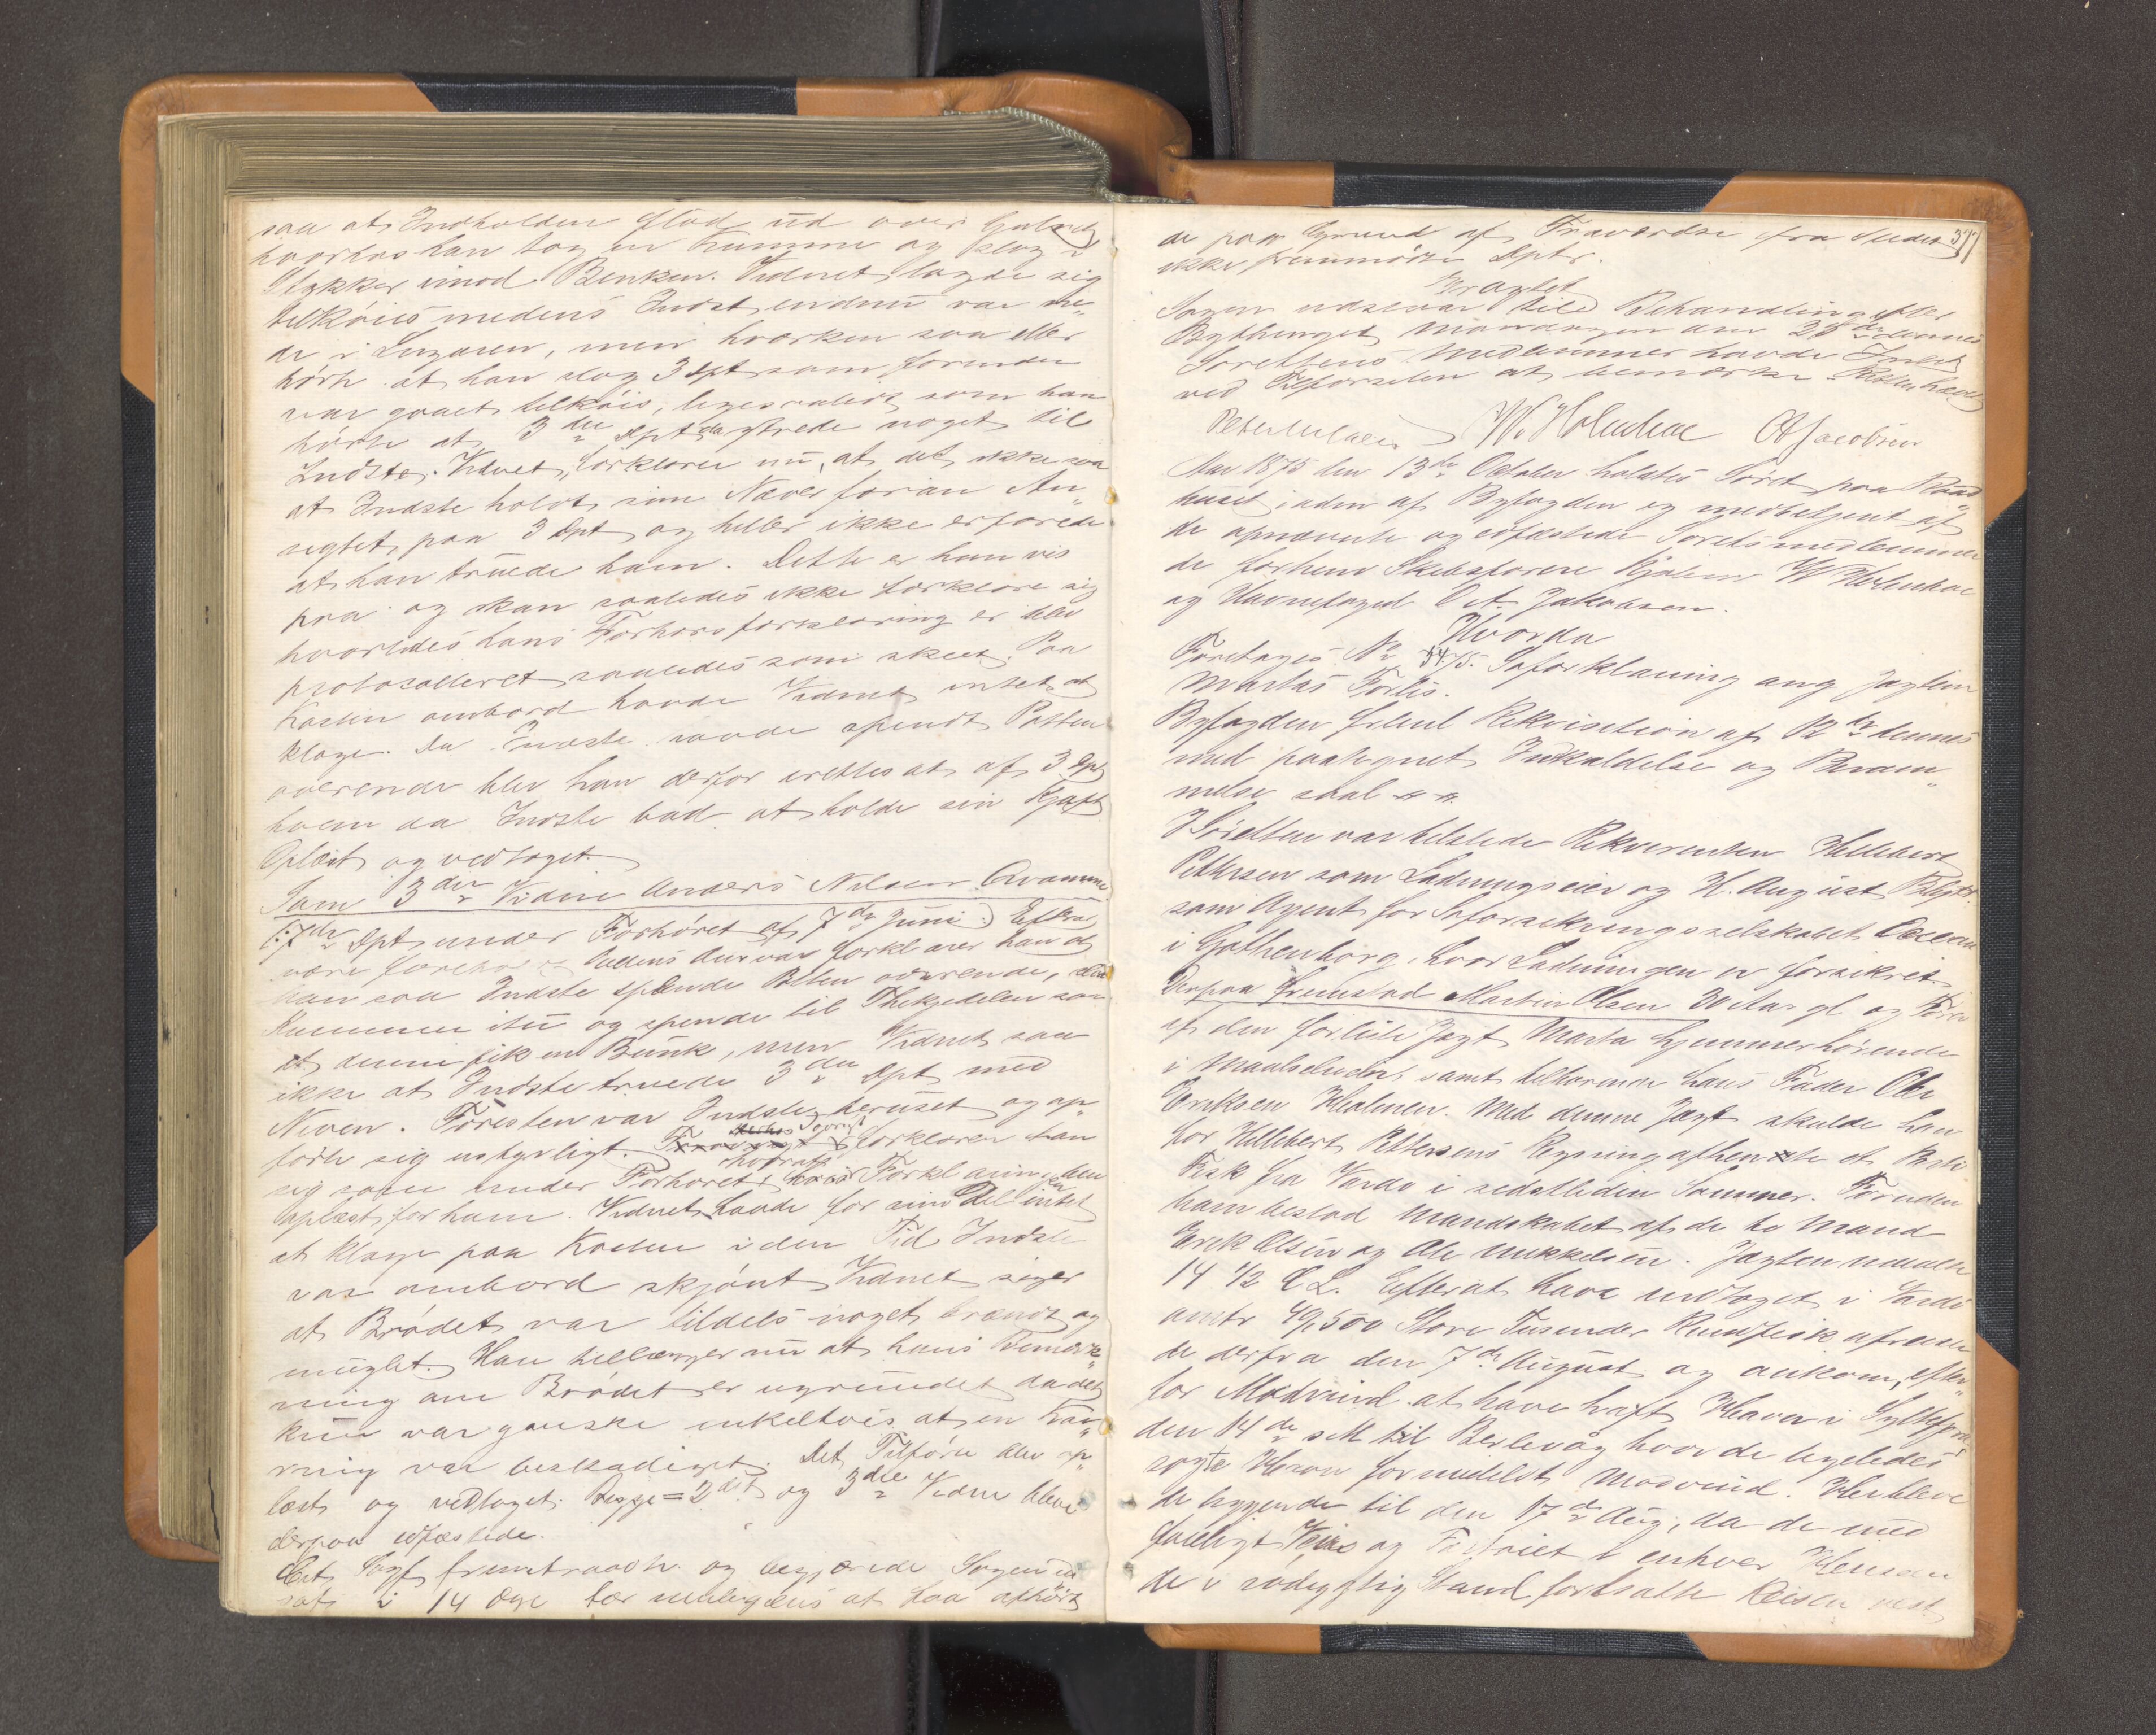 saa at Indholdet flöd ud over Gulvet
hvorhos han tog en Kumme og slog i
Stykker imod Benken. Vidnet lagde sig
tilköies medens Indst endnu var ne„
de i Lugaren, men hverken saa eller
hörte at han slog 3 Dpt som forinden
var gaaet tilköis, ligesaalidt som han
hörte at 3die Dpt da ytrede noget til
Indste. Vidnet forklarer nu, at det ikke saa
at Indste holdt sin Næve foran An„
sigtet paa 3 Dpt og heller ikke erfarede
at han truede ham. Dette er han vis
paa og kan saaledes ikke forklare sig
hvorledes hans Forhörsforklaring er blev
protocolleret saaledes som skeet. Paa
Kosten ombord havde Vidnet intet at
klage. Da Indste havde spendt Potten
overende blev han derfor irettesat af 3 Dpt
hvem da Indste bad at holde sin Kjæft
Oplæst og vedtaget.
Som 3die Vidne Anders Nilsen Qvamme
(:7de Dpt under Forhöret af 7de Juni:) Efter at
være foreholdt Edens Ansvar forklarer han at
han saa Indste spænde Potten overende, slaa
Kummen itu og spende til Thekjedelen saa
at denne fik en Bunk, men Vidnet saa
ikke at Indste truede 3die Dpt med
Næven. Foresten var Indste beruset og op„
förte sig ustyrligt. Iövrigt forklarer han
sig som under Forhöret hvorafs Forklaring blev
oplæst for ham. Vidnet havde for sin Del intet
at klage paa Kosten i den Tid Indste
var ombord skjönt Vidnet siger
at Brödet var tildels noget brændt og
muglet. Han tillægger nu at hans Bemærk„
ning om Brödet er ugrundet da det
kun var ganske enkeltvis at en Kav„
ring var beskadiget. Det Tilförte blev op„
læst og vedtaget. Begge = 2det og 3die Vidne bleve
derpaa edfæstede.
Act Sagf fremtraadte og begjærede Sagen ud„
sat i 14 Dage for muligens at faa afhört
de paa Grund af Fraværelse fra Stedet 377
ikke fremmödte Dptr.
Eragtet
Sagen udsættes til Behandling efter
Bythinget Mandagen den 25de dennes
Sörettens Medlemmer havde Intet
ved Tilförselen at bemærke. Retten hævet
W. Holmboe OA Jacobsen
Aar 1875 den 13de October holdtes Söret paa Raad„
huset i aden af Byfogden og medbetjent af
de opnævnte og edfæstede Söretsmedlemmer
de forhenv Skibsförere Kjölner W Holmboe
og Havnefoged O A Jakobsen.
Hvorda
Foretoges No 54/75. Söforklaring ang Jagten
Martas Forlis.
Byfogden fremlt Rekvisition af 12te dennes
med paategnet Indkaldelse og Beram„
melse saal # #.
I Söretten var tilstede Rekvirenten Hellebert
Pettersen som Ladningseier og H. August
som Agent for Söforsikringsselskabet Ocean
i Gothenborg, hvor Ladningen er forsikret.
Derpaa fremstod Martin Olsen 30 Aar gl og Förer
af den forliste Jagt Marta hjemmehörende
i Maalselven, samt tilhörende hans Fader Ole
Eriksen Holmen. Med denne Jagt skulde han
for Hellebert Pettersens Regning afhente et Parti
Fisk fra Vardö i sidstleden Sommer. Foruden
ham bestod Mandskabet af de to Mand
Erik Olsen og Ole Mikkelsen. Jagten maalte
14 1/2 C L. Efterat have indtaget i Vardö
omtr 49,500 Store Tusender Rundfisk afreiste
de derfra den 7de August og ankom, efter
for Modvind at have havt Havn i Syltefjord
den 14de s M til Berlevåg hvor de ligeledes
sögte Havn formedelst Modvind. Her bleve
de liggende til den 17de Aug, da de med
föieligt Veir og Fartöiet i enhver Hensee„
de i södygtig Stand fortsatte Reisen vest